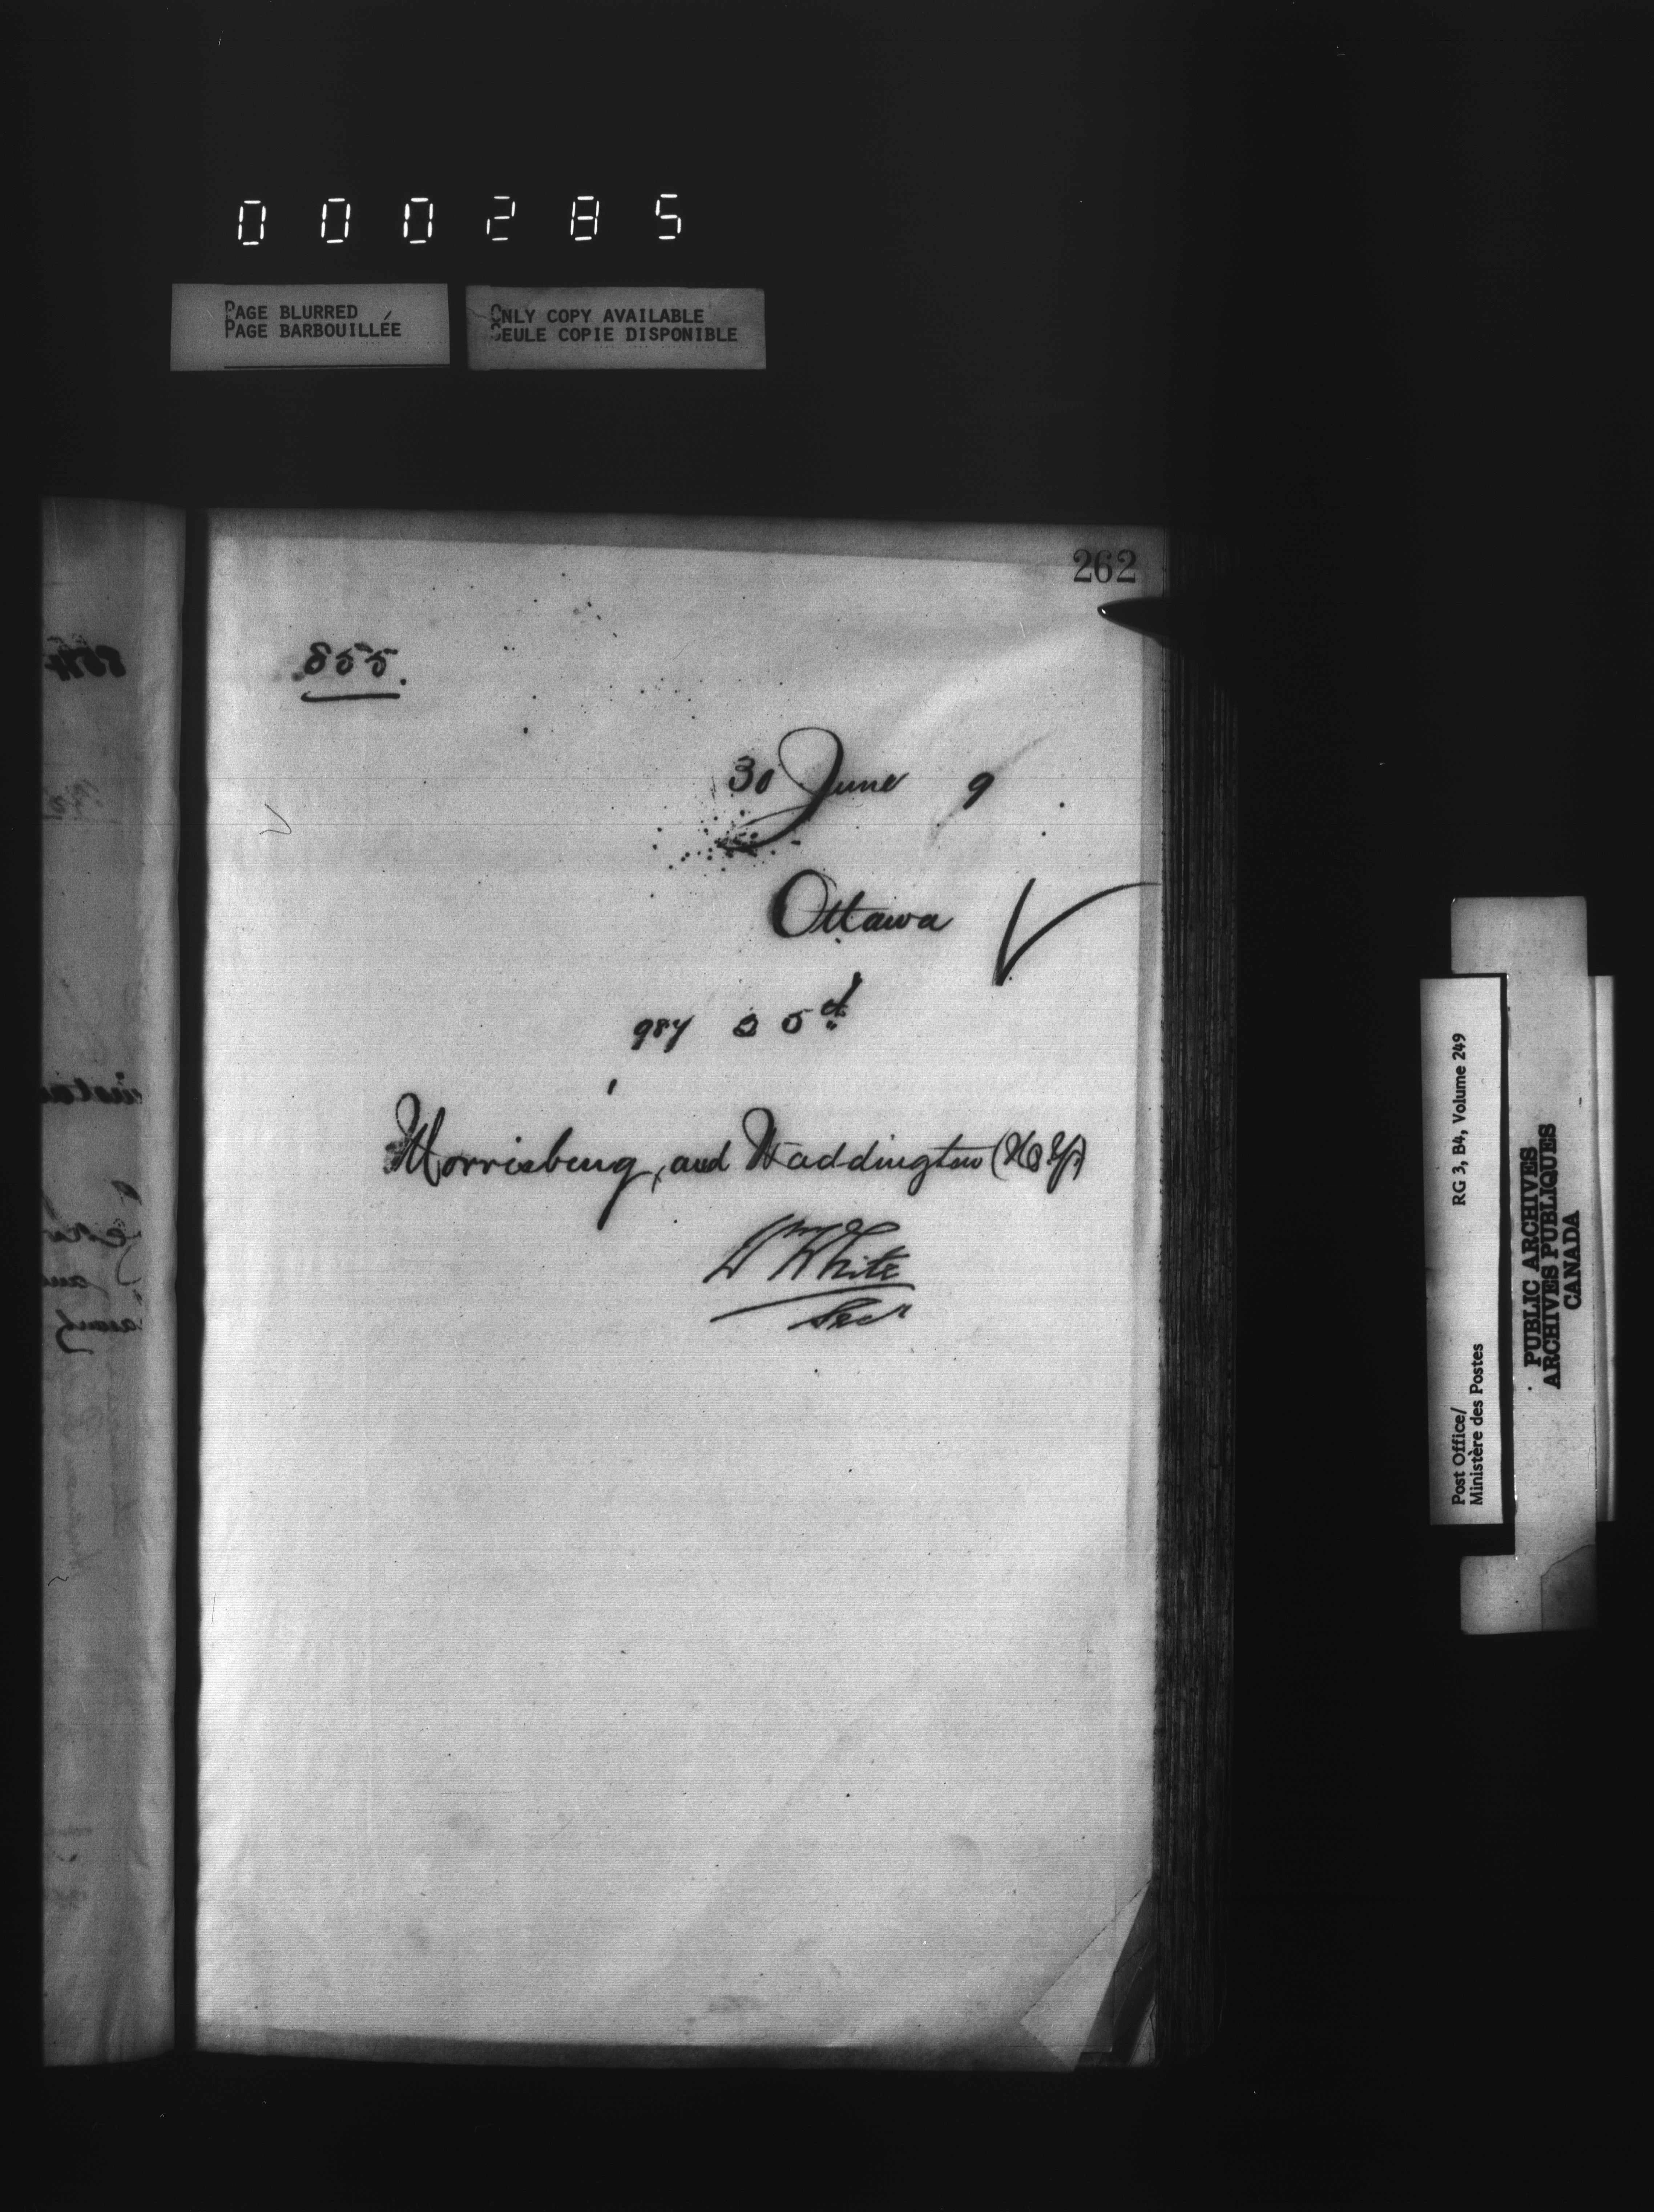 000285
PAGE BLURRED
PAGE BARBOUILLÉE
ONLY COPY AVAILABLE
SEULE COPIE DISPONIBLE
262
855.
30 June 9
Ottawa
987 25ct
Morrisburg, and Waddington (N.Y.)
Wm White
Secr
Post Office/
Ministère des Postes
RG 3, B4, Volume 249
PUBLIC ARCHIVES
ARCHIVES PUBLIQUES
CANADA